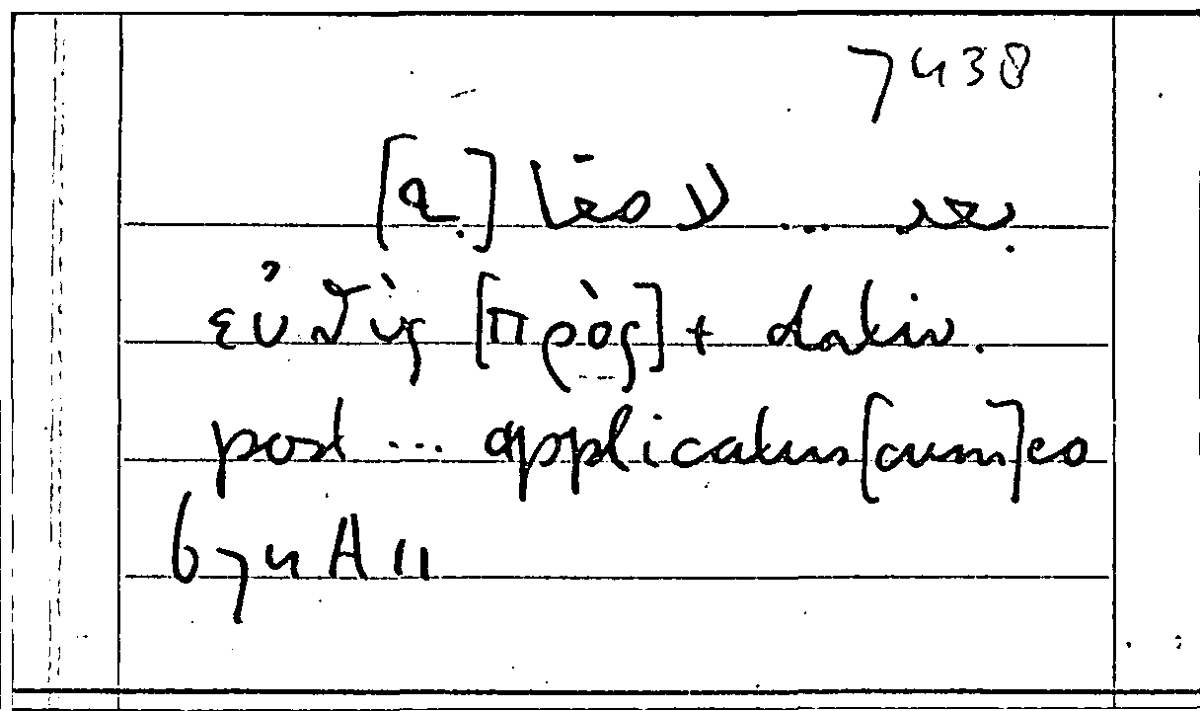 7438
بعد ... لاصقا [به]
εὐθὺς [πρὸς] + dativ.
post ... applicatus [cum] eo
674 A 11